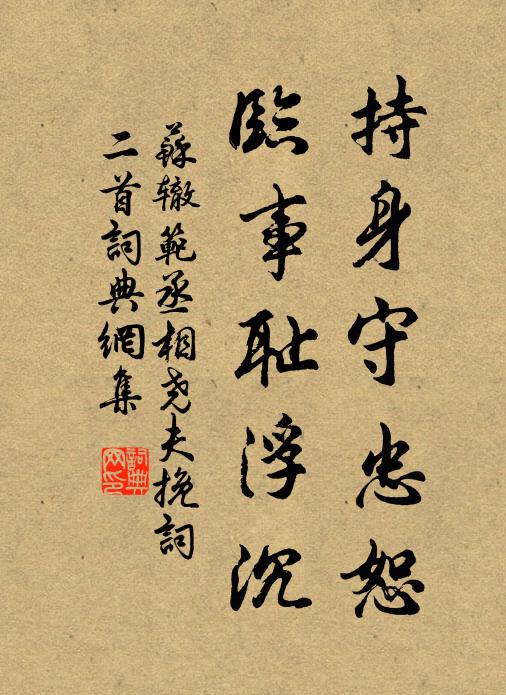 持身守忠恕
臨事耻浮沉
蘇辙範丞相尧夫挽詞
二首詞典網集
詞典
网印